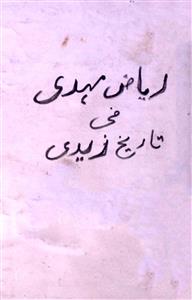 ریاض مہدی
فی
تاریخ زیدی